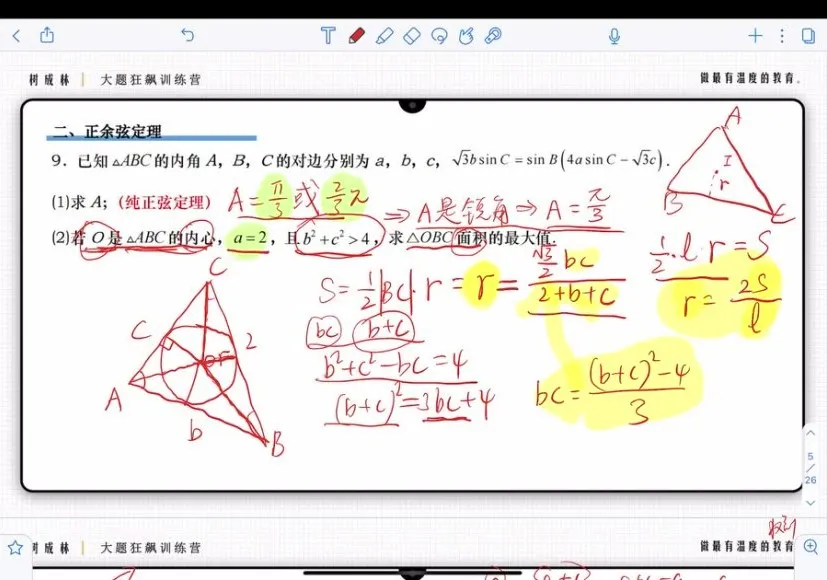 树成林 | 大题狂飙训练营
做最有温度的教育。
二、正余弦定理
9．已知△ABC的内角A，B，C的对边分别为a，b，c，√3bsinC=sinB(4asinC−√3c)．
(1)求A；(纯正弦定理) A=π/3或2/3π ⇒A是锐角⇒A=π/3
(2)若O是△ABC的内心，a=2，且b²+c²>4，求△OBC面积的最大值.
A
I
r
B
C
S=1/2|BC|·r=r=(√3/2 bc)/(2+b+c)
1/2·l·r=S
r=2S/l
bc b+c
b²+c²-bc=4
(b+c)²=3bc+4
bc=((b+c)²-4)/3
C
C
O
r
2
A
b
B
5
/
26
树成林 | 大题狂飙训练营
做最有温度的教育